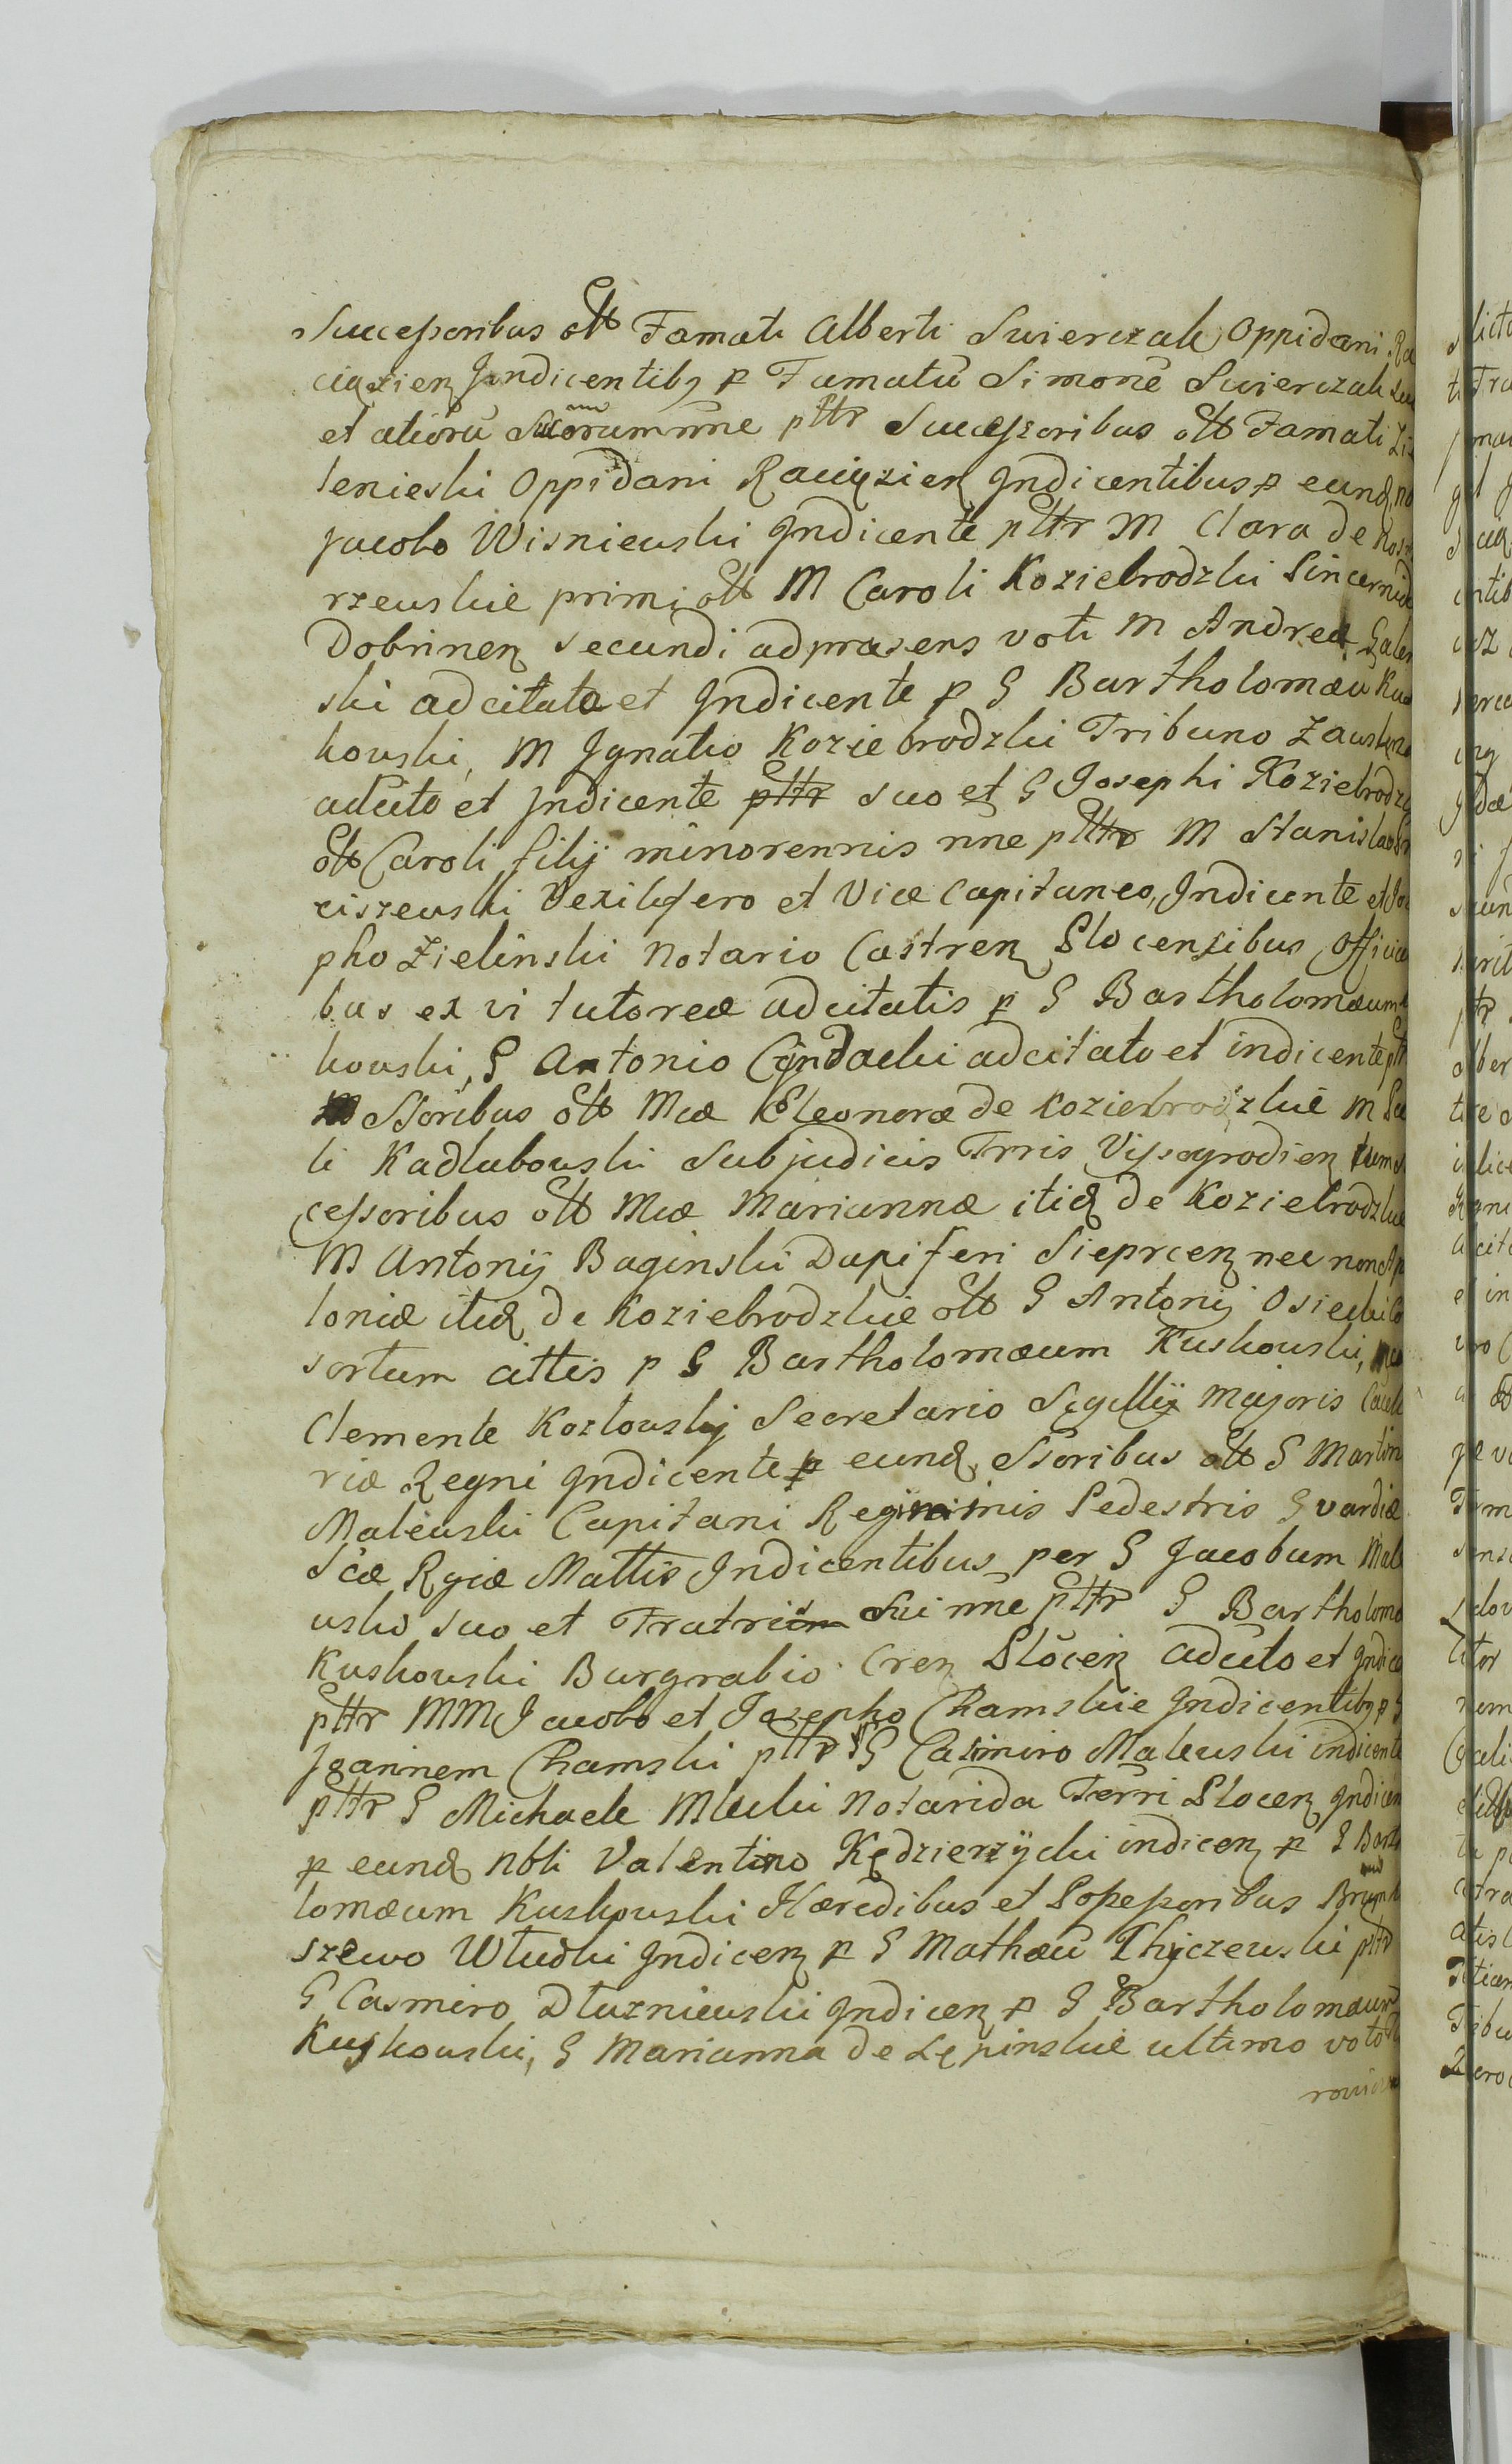 Successoribus olt Famati Alberti Swierczak Oppidani Ra
ciązien Jndicentibq p Famatū Simonē Swierczak suo
et aliorū Successorum nñe plttr Successoribus olt Famati Zi
leniecki Oppidani Raciązien Jndicentibus p eund no
Jacobo Wisniewski Jndicente plttr M Clara de Kos
rzewskie primi olt M Caroli Koziebrodzki Pincernide
Dobrinen secundi ad præsens voti M Andrea Galen
ski adcitata et Jndicente p G Bartholomæu Kus
kowski, M Jgnatio Koziebrodzki Tribuno Zawskrn
adcito et Jndicente plttr suo et G Josephi Koziebrodz
olt Caroli filij minorennis nñe plttr M Stanislao
ciszewski Vexillifero et Vice Capitaneo, Jndicente et Jose
pho Zielinski Notario Castren Plocensibus Officia
bus ex vi tutoreæ adcitatis p G Bartholomæum
kowski, G Antonio Cyndacki adcitato et indicente plttr
Ssoribus olt Mcæ Eleonoræ de Koziebrodzkie M Pau
li Kadłubowski Subjudicis Trris Vissogrodien tum Suc
cessoribus olt Mcæ Mariannæ itid de Koziebrodzkie
M Antonij Baginski Dapiferi Sieprcen nec non Apo
loniæ itid de Koziebrodzkie olt G Antonij Osiecki Co
sortum cittis p G Bartholomæum Kuskowski,
Clemente Kozłowskij Secretario Sigillij Majoris Cancella
riæ Regni Jndicente p eund, Ssoribus olt G Martini
Malewski Capitani Regiminis Pedestris Gvardiæ
Scæ Rgiæ Mattis Jndicentibus per G Jacobum Male
wski suo et Fratris Sui nñe plttr G Bartholomeo
Kuskowski Burgrabio Cren Plocen adcito et Jndice
plttr MM Jacobo et Josepho Chamskie Jndicentibq p G
Joannem Chamski plttr G Casimiro Malewski indicente
plttr G Michaele Mlecki Notarida Terri Plocen Jndicen
p eund Nbli Valentino Kędzierzycki indicen p G Bartho
lomæum Kuskowski Hæredibus et Possessoribus
szewo Włudki Jndicen p G Mathæū Chyczewski plttr
G Casmiro Dłuzniewski Jndicen p G Bartholomæum
Kuskowski, G Marianna de Lępinskie ultimo voto